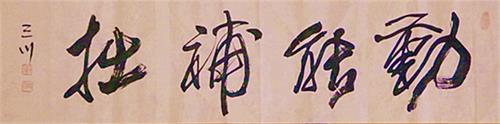 勤能補拙
三川